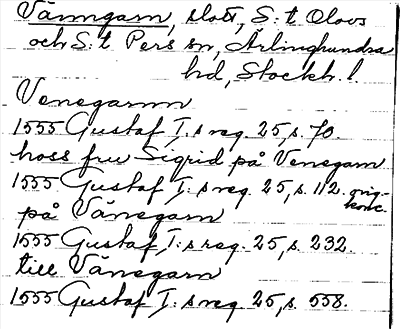 Vänngarn, slott, S:t Olovs
och S:t Pers sn, Ärlinghundra
hd, Stockh. l.
Venegarnn
1555 Gustaf I:s reg. 25, s. 70.
hoss fru Sigrid på Venegarn
1555 Gustaf I:s reg. 25, s. 112. orig-
konc.
på Vänegarn
1555 Gustaf I:s reg. 25, s. 232.
till Vänegarn
1555 Gustaf I:s reg. 25, s. 558.